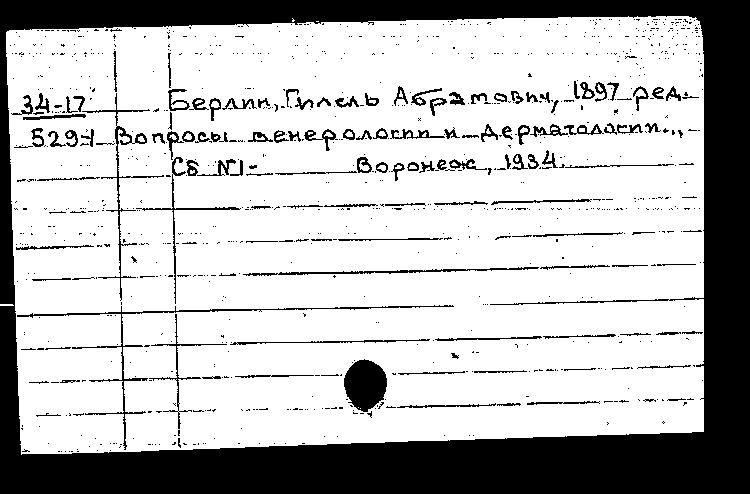 34-17 Берлин, Гилель Абрамович, 1897 ред.
529-1 Вопросы венерологии и дерматологии..,
Сб №1- Воронеж, 1934.